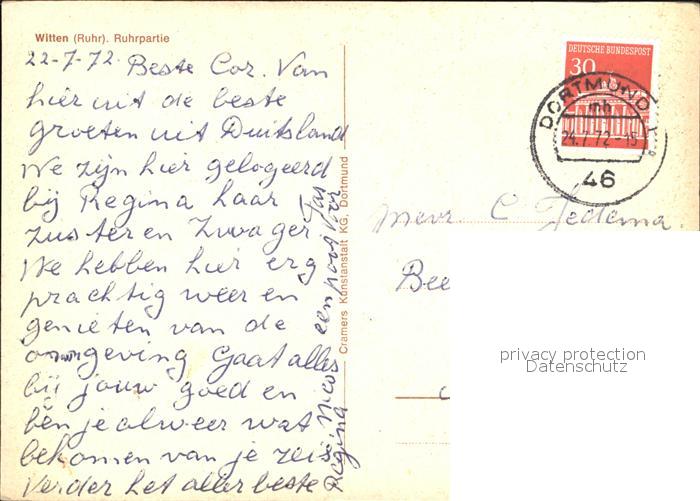 Witten (Ruhr). Ruhrpartie
22-7-72. Beste Cor. Van
hier uit de beste
groeten uit Duitsland
We zijn hier gelogeerd
bij Regina haar
zuster en zwager
We hebben hier erg
prachtig weer en
genieten van de
omgeving Gaat alles
bij jouw goed en
ben je alweer wat
bekomen van je reis
Verder het aller beste
Regina Nico
een poot voor
Cramers Kunstanstalt KG, Dortmund
DEUTSCHE BUNDESPOST
30
DORTMUND 1
mh
24.7.72-15
46
Mevr C Tedema
Bee
privacy protection
Datenschutz